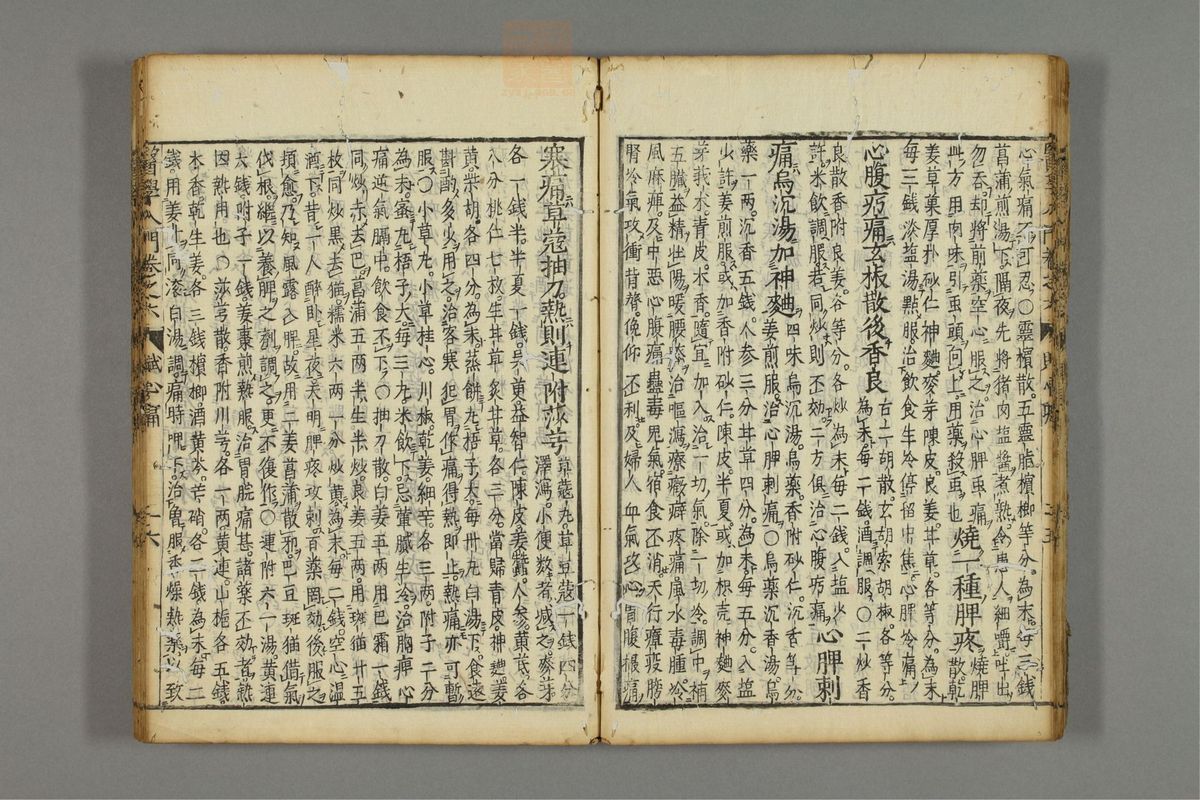 心氣痛不可忍○靈檳散五靈脂檳榔等分為末每三錢
菖蒲煎湯下隔夜先將猪肉塩醬煮熟令患人細嚼吐出
勿吞却將前藥空心服之治心脾虫痛
燒脾
此方用肉味引虫頭向上用藥殺虫也
燒二種脾疼
散乾
姜草菓厚朴砂仁神麯麥芽陳皮良姜甘草各等分為末
每三錢淡塩湯點服治飲食生冷停留中焦心脾冷痛
心腹疞痛玄椒散後香良
右二胡散玄胡索胡椒各等分
為末每二錢酒調服○二炒香
良散香附良姜各等分各炒為末每二錢入塩少
許米飲調服若同炒則不効二方俱治心腹疞痛
心脾刺
痛烏沉湯加神麯
四味烏沉湯烏藥香附砂仁沉香等分
姜煎服治心脾刺痛○烏藥沉香湯烏
藥一兩沉香五錢人參三分甘草四分為末每五分入塩
少許姜煎服或加香附砂仁陳皮半夏或加枳壳神麯麥
芽莪朮青皮木香隨宜加入治一切氣除一切冷調中補
五臟益精壯陽暖腰膝治嘔瀉療癥癖疼痛風水毒腫冷
風麻痺及中惡心腹痛蠱毒鬼氣宿食不消天行瘴疫膀
腎冷氣攻衝背膂俛仰不利及婦人血氣攻心胃腹根痛
寒痛草蔻抽刀熱則連附莎芎
草蔻丸草豆蔻一錢四分
澤瀉小便数者减之麥芽
各一錢半半夏一錢吳茱益智仁陳皮姜蠶人參黄芪各
八分桃仁七枚生甘草炙甘草各三分當歸青皮神麯姜
黄柴胡各四分為末蒸餅丸梧子大每卅丸白湯下食遠
斟酌多少用之治客寒犯胃作痛得熱即止熱痛亦可暫
服○小草丸小草桂心川椒乾姜細辛各三兩附子二分
為末蜜丸梧子大每三丸米飲下忌葷臓生冷治胸痺心
痛逆氣膈中飲食不下○抽刀散白姜五兩用巴霜一錢
同炒赤去巴菖蒲五兩半生半炒良姜五兩用斑猫廿五
枚同炒黑去猫糯米六兩一分炒黄為末每二錢空心温
酒下昔一人醉卧星夜天明脾疼攻刺百藥罔効後服之
頓愈乃知風露入脾故用二姜菖蒲散邪巴豆斑猫借氣
伐根繼以養脾之劑調之更不復作○連附六一湯黄連
六錢附子一錢姜棗煎熱服治胃脘痛甚諸藥不効者熱
因熱用也○莎芎散香附川芎各一兩黄連山梔各五錢
木香乾生姜各三錢檳榔酒黄芩芒硝各二錢為末每二
錢用姜汁同滚白湯調痛時呷下治曽服香燥熱藥以致
醫學入門卷之六
賦心痛
六